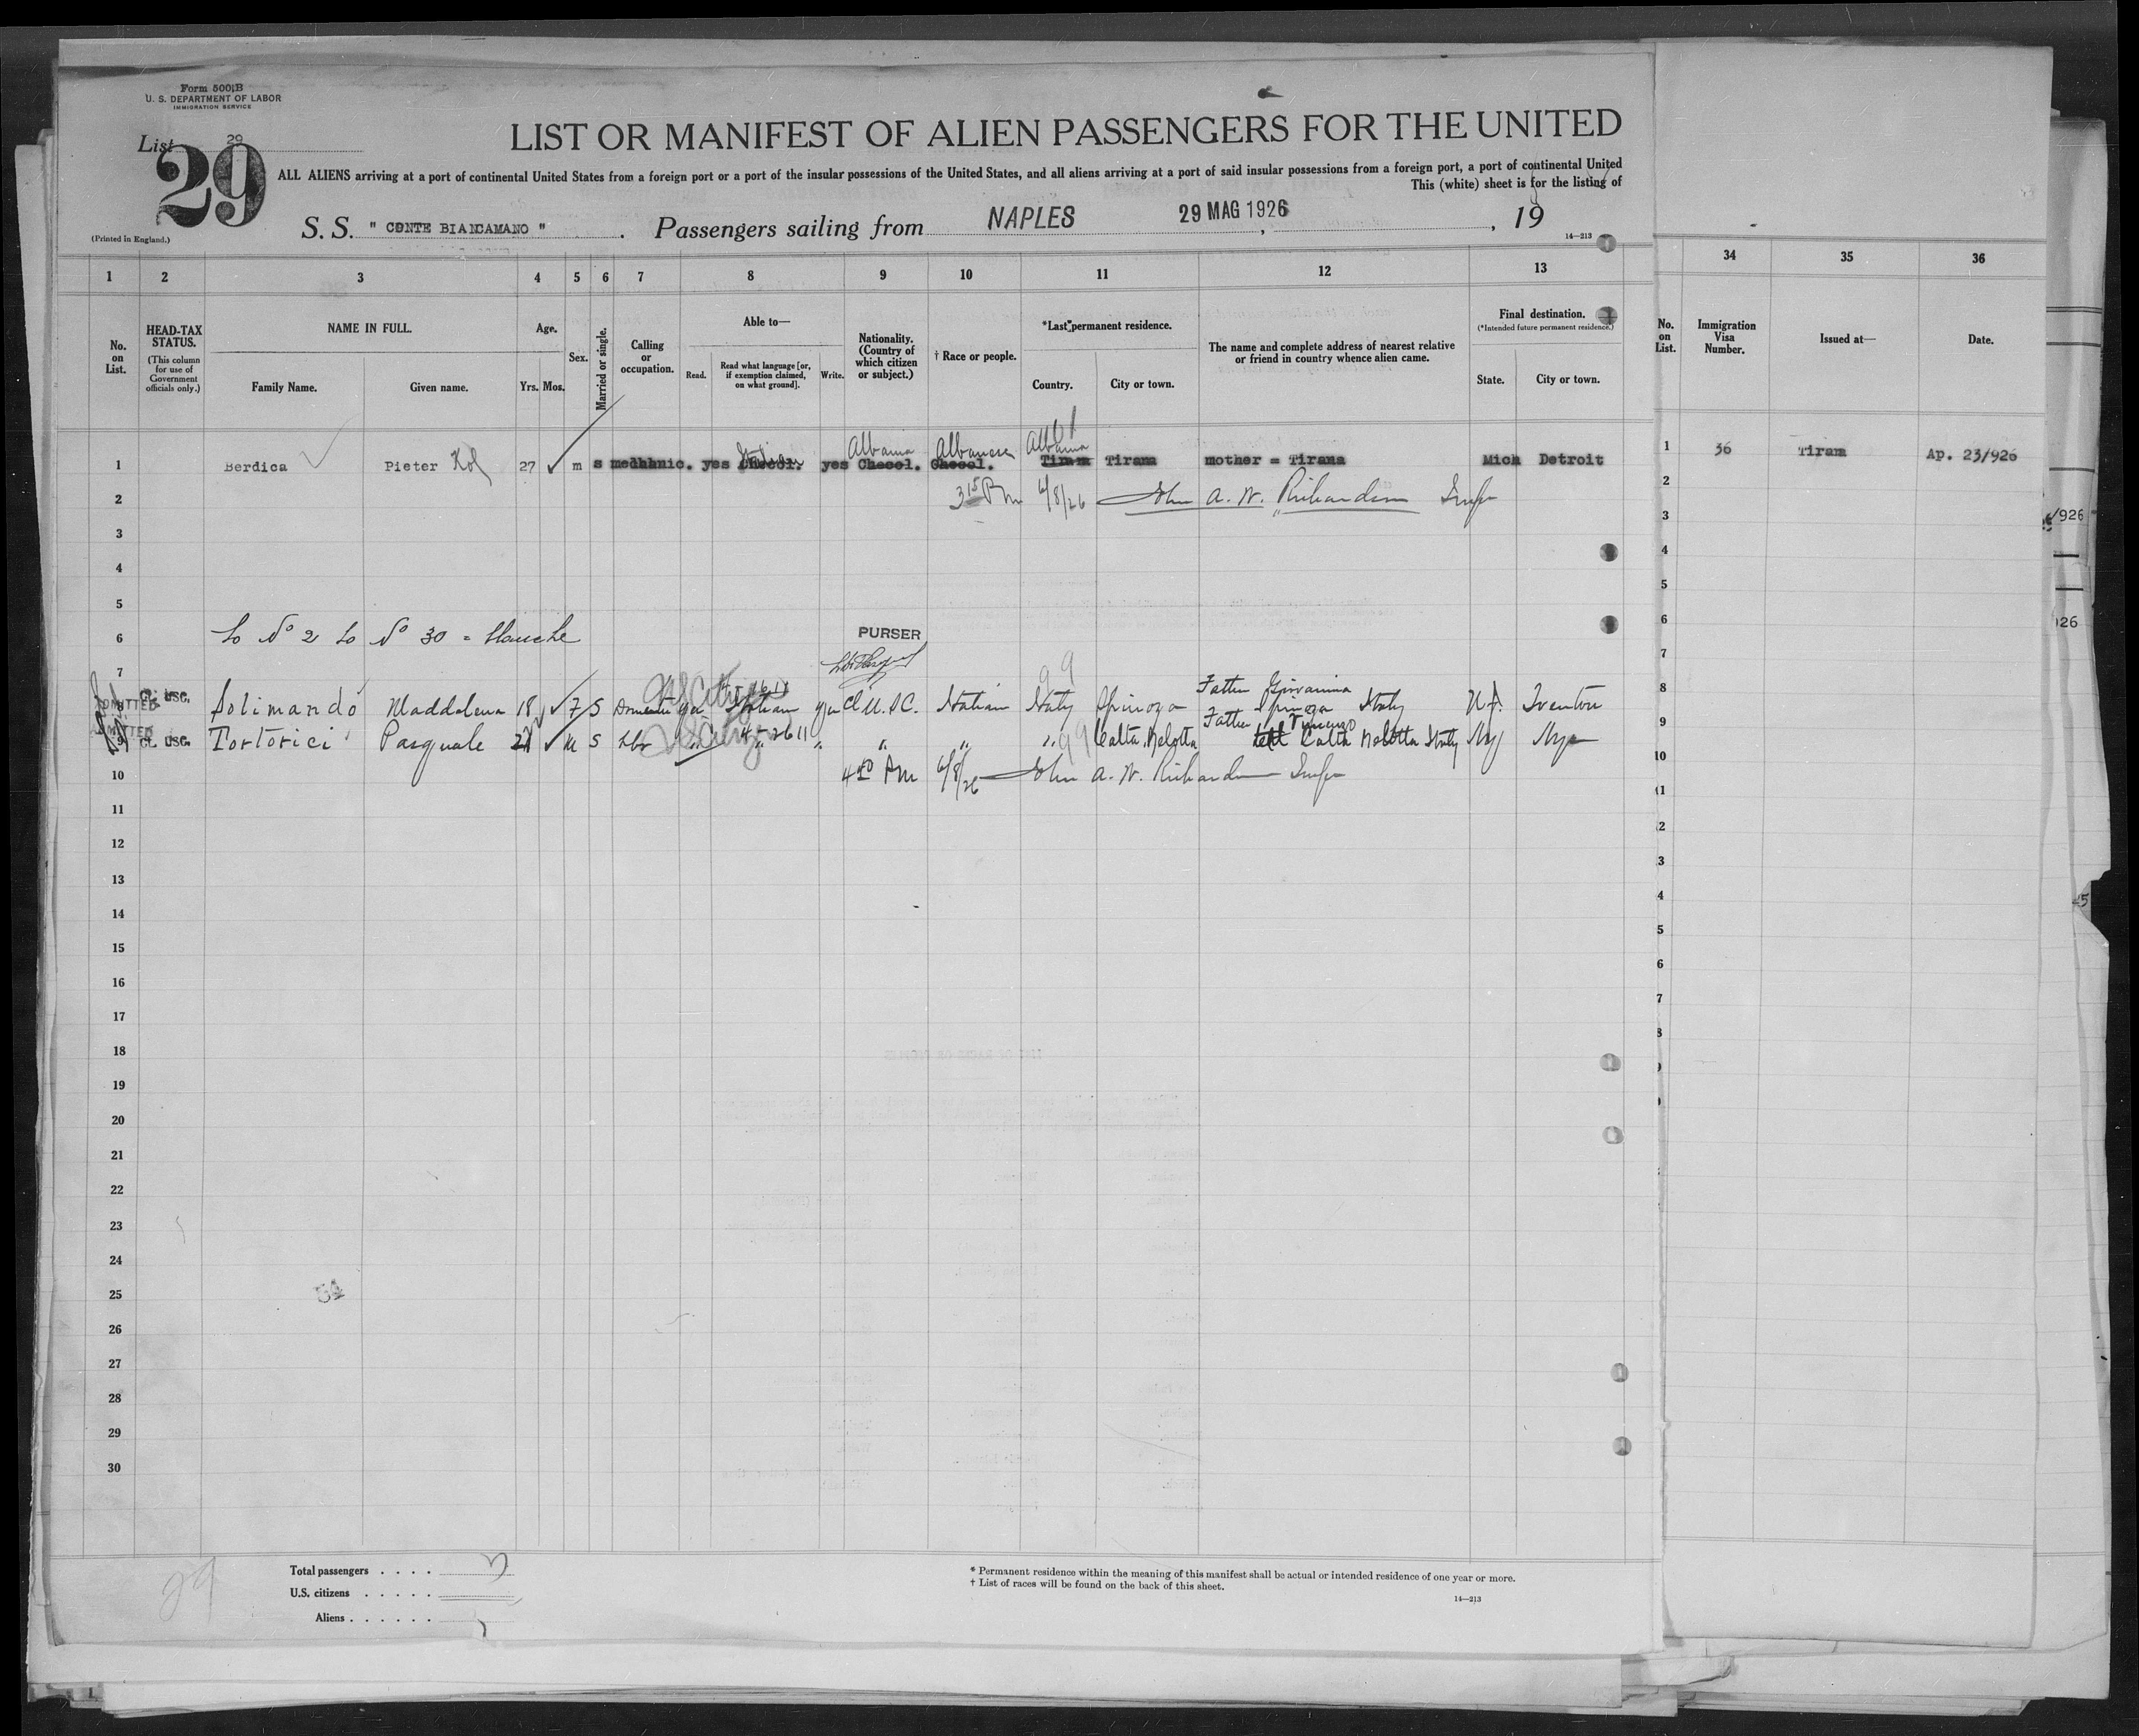 Form 500B
U. S. DEPARTMENT OF LABOR
IMMIGRATION SERVICE
List 29
29
LIST OR MANIFEST OF ALIEN PASSENGERS FOR THE UNITED
ALL ALIENS arriving at a port of continental United States from a foreign port or a port of the insular possessions of the United States, and all aliens arriving at a port of said insular possessions from a foreign port, a port of continental United
This (white) sheet is for the listing of
(Printed in England.)
S. S. " CONTE BIANCAMANO " . Passengers sailing from NAPLES 29 MAG 1926 , 19
14—213
1 2 3 4 5 6 7 8 9 10 11 12 13 34 35 36
No. on List.
HEAD-TAX STATUS.
(This column for use of Government officials only.)
NAME IN FULL.
Family Name. Given name.
Age.
Yrs. Mos.
Sex.
Married or single.
Calling or occupation.
Able to—
Read. Read what language [or, if exemption claimed, on what ground]. Write.
Nationality. (Country of which citizen or subject.)
† Race or people.
*Last permanent residence.
Country. City or town.
The name and complete address of nearest relative or friend in country whence alien came.
Final destination.
(*Intended future permanent residence.)
State. City or town.
No. on List.
Immigration Visa Number.
Issued at—
Date.
Albania Albanese Albania
1 Berdica Pieter Kol 27 m s mechanic. yes yes Checol. Checol. Tiram Tirana mother = Tirana Mich Detroit
1 36 Tiram Ap. 23/926
2 3 15 Pm 6/8/26 John A. W. Richardson Insp
3
4
5
6 to No 2 to No 30 = blanche
PURSER
7
99
ADMITTED
Father Giovannina
8 Gt. use. Solimando Maddalena 18 F S Domestic yes Italian yes Cl U.S.C. Italian Italy Spinoza Spinoza Italy N.J. Trenton
ADMITTED
Father Vincenzo
9 Gt. use. Tortorici Pasquale M S Lbr " " " " " " Calta Belotta Calta Belotta Italy NY NY
10 4 50 Pm 6/8/26 John A. W. Richardson Insp
11
12
13
14
15
16
17
18
19
20
21
22
23
24
25
54
26
27
28
29
30
29
Total passengers . . . .
U.S. citizens . . . . .
Aliens . . . . . .
* Permanent residence within the meaning of this manifest shall be actual or intended residence of one year or more.
† List of races will be found on the back of this sheet.
14—213
/926
26